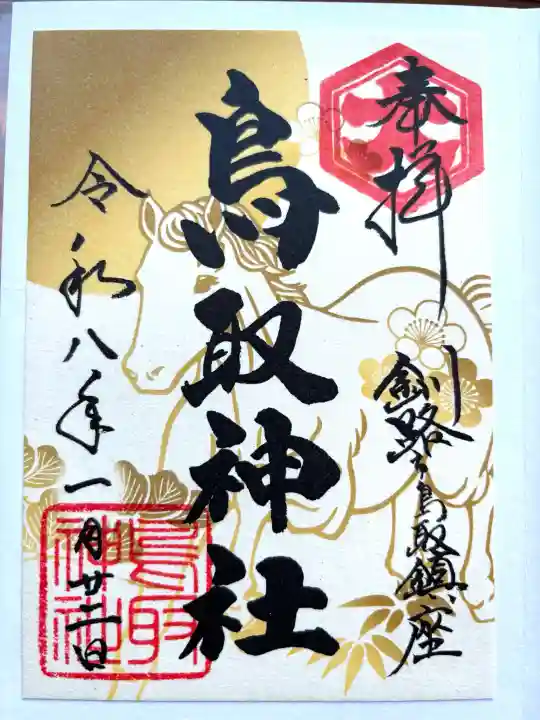 奉拝
釧路ヶ鳥取鎮座
鳥取神社
令和八年一月廿二日
鳥取
神社